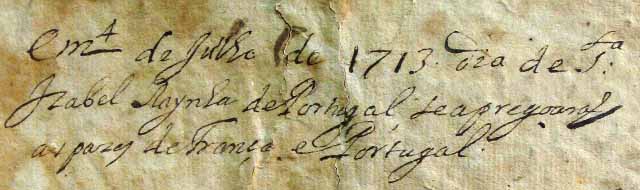 em 4 de Julho de 1713. dia de S.ta
Izabel Raynha de Portugal se apregoaraõ
as pazes de França e Portugal